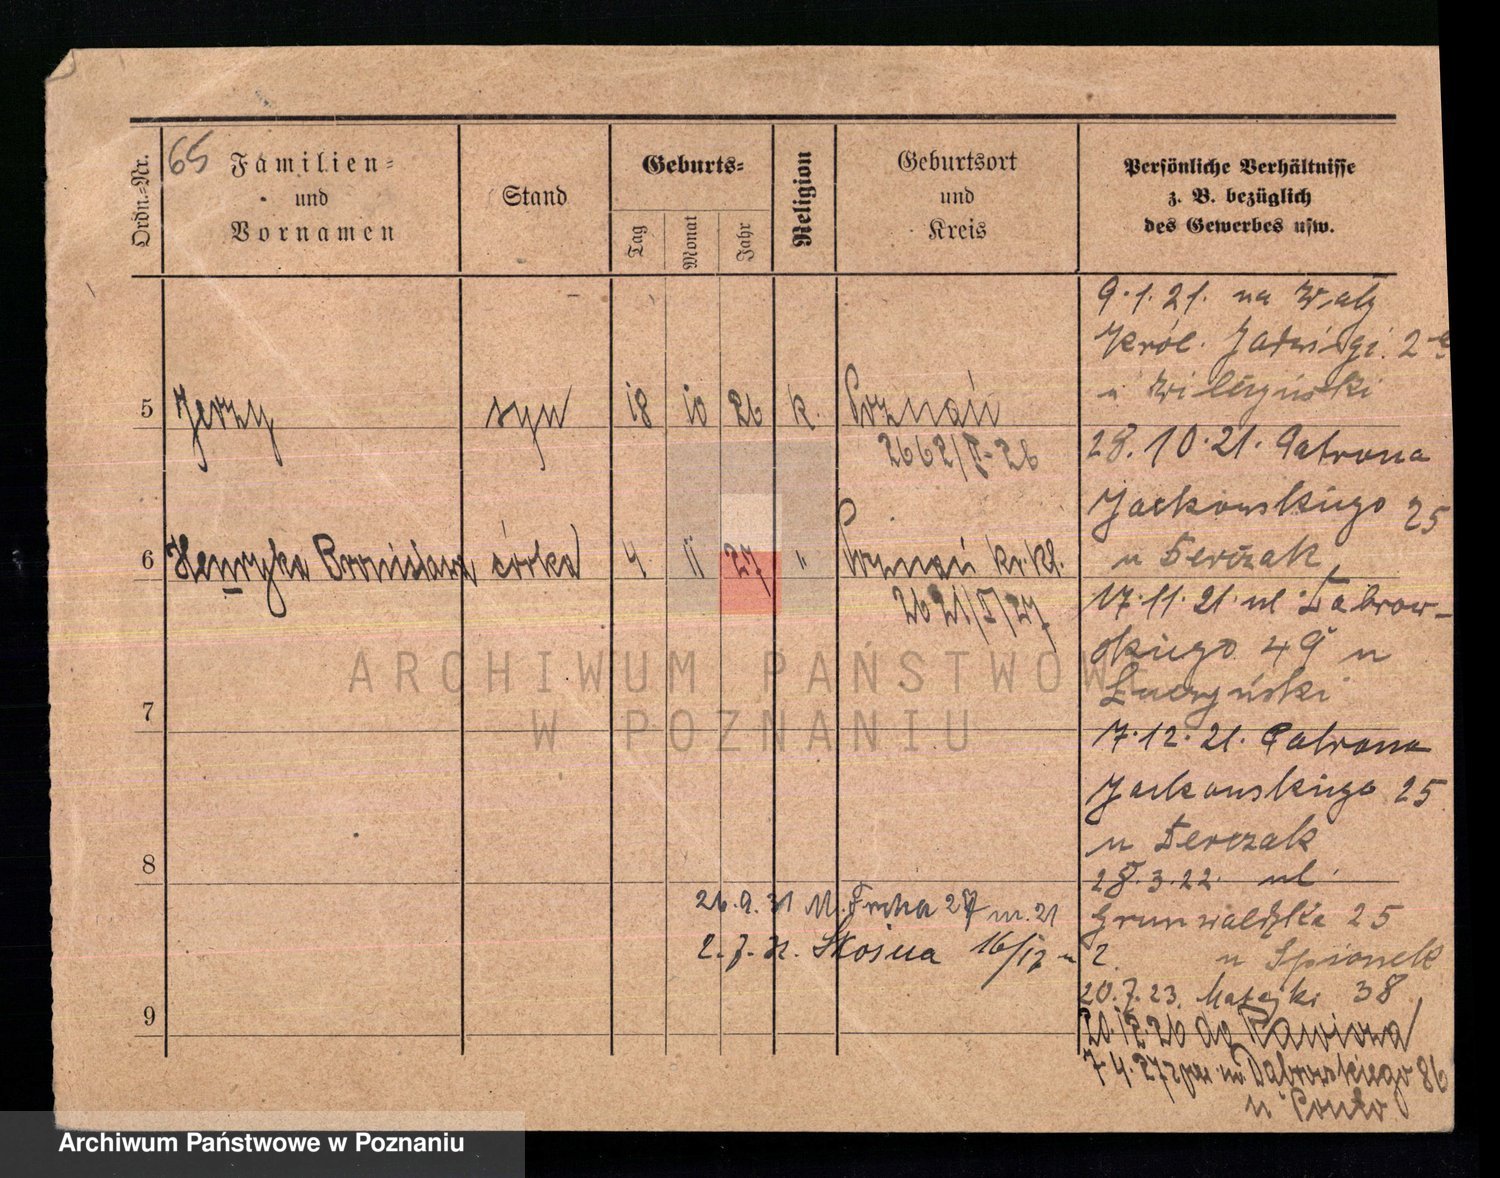 65
Ordn.-Nr.
Familien- und Vornamen
Stand
Geburts-
Tag
Monat
Jahr
Religion
Geburtsort und Kreis
Persönliche Verhältnisse
z. B. bezüglich
des Gewerbes usw.
9.1.21. na Wały
Król. Jadwigi. 2
u Wilczyński
5 Jerzy syn 18 10 26 k. Poznań
2662/I-26
28.10.21. Patrona
Jackowskiego 25
u Derczak
6 Henryka Bronisława córka 4 11 27 " Poznań
2621/I/27
17.11.21 ul Dąbrow-
skiego 49 u
Łuczyński
7
7.12.21. Patrona
Jackowskiego 25
u Derczak
8
28.3.22. ul.
26.9.31 M. Focha 27 m. 21
Grunwaldzka 25
2.7.32. Stojna 16/17 m 2
u Spionek
20.7.23. Matejki 38
9
do Rawicza
7.4.27 Dąbrowskiego 86
ARCHIWUM PAŃSTWOWE
W POZNANIU
Archiwum Państwowe w Poznaniu